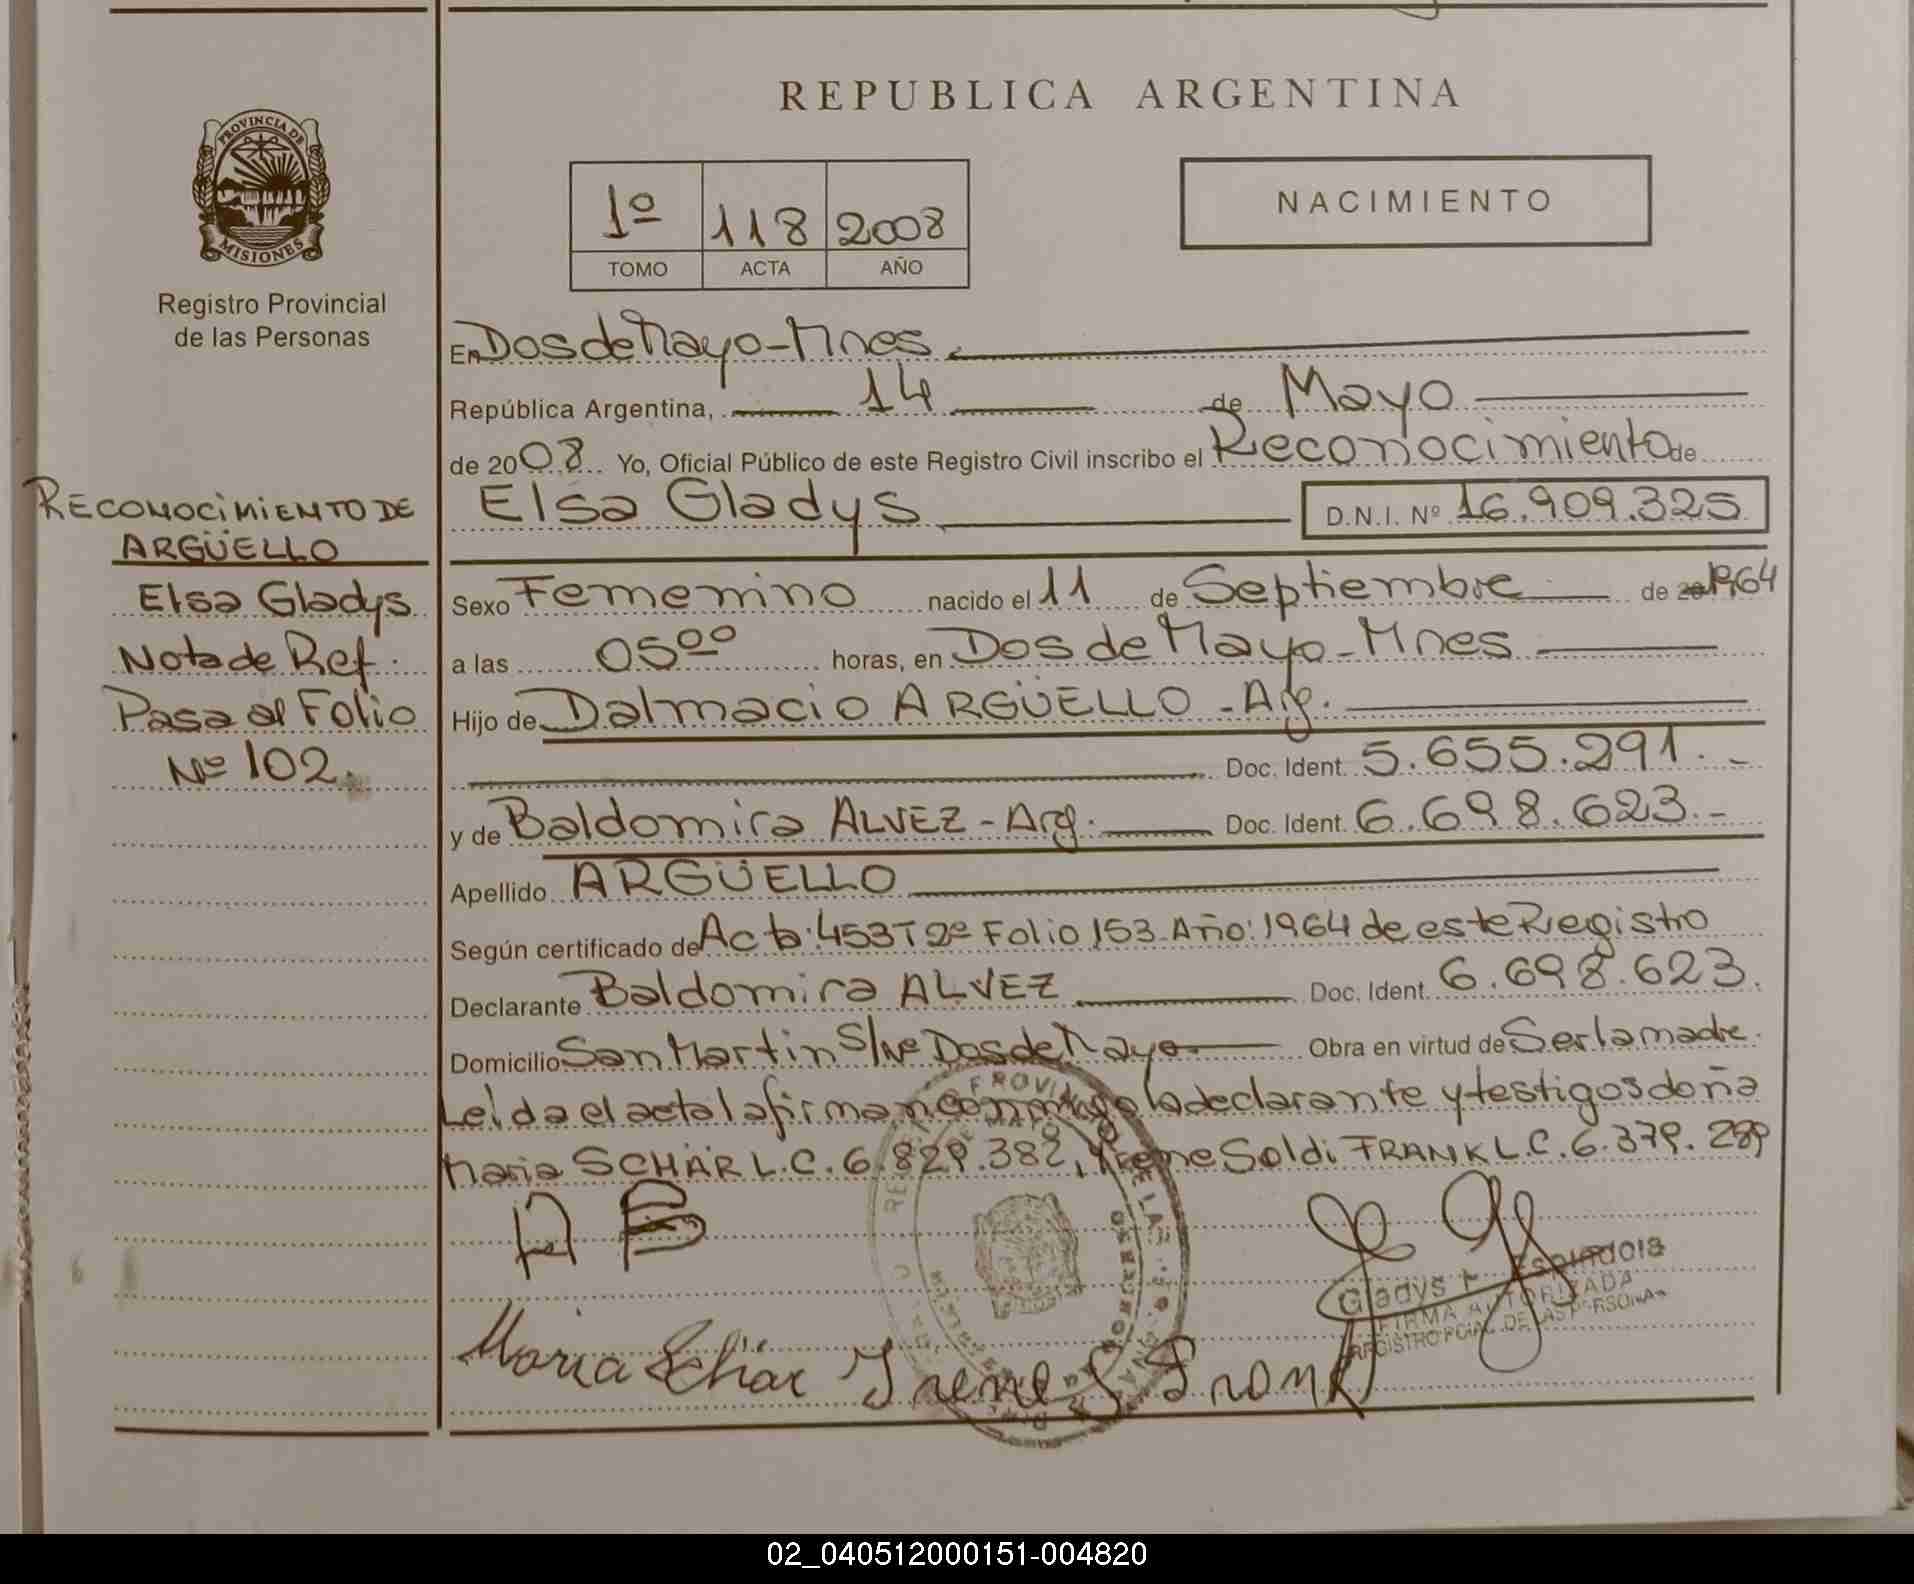 REPUBLICA ARGENTINA
PROVINCIA DE
MISIONES
Registro Provincial
de las Personas
1º 118 2008
TOMO ACTA AÑO
NACIMIENTO
En Dos de Mayo - Mnes.
República Argentina, 14 de Mayo
de 2008 Yo, Oficial Público de este Registro Civil inscribo el Reconocimiento de
Elsa Gladys D.N.I. Nº 16.909.325
RECONOCIMIENTO DE
ARGÜELLO
Elsa Gladys
Nota de Ref.
Pasa al Folio
Nº 102.
Sexo Femenino nacido el 11 de Septiembre de 20 1964
a las 05⁰⁰ horas, en Dos de Mayo - Mnes
Hijo de Dalmacio ARGÜELLO - Arg.
Doc. Ident. 5.655.291. -
y de Baldomira ALVEZ - Arg. Doc. Ident. 6.698.623. -
Apellido ARGÜELLO
Según certificado de Acta: 453 T 2º Folio 153 Año: 1964 de este Registro
Declarante Baldomira ALVEZ Doc. Ident. 6.698.623.
Domicilio San Martin S/Nº Dos de Mayo Obra en virtud de Ser la madre.
Leída el acta la firman conmigo la declarante y testigos doña
Maria SCHÄR L.C. 6.829.382, Irene Soldi FRANK L.C. 6.379.289
A B
Gladys Espindola
FIRMA AUTORIZADA
REGISTRO PCIAL. DE LAS PERSONAS
Maria Schär Irene S Frank
02_040512000151-004820